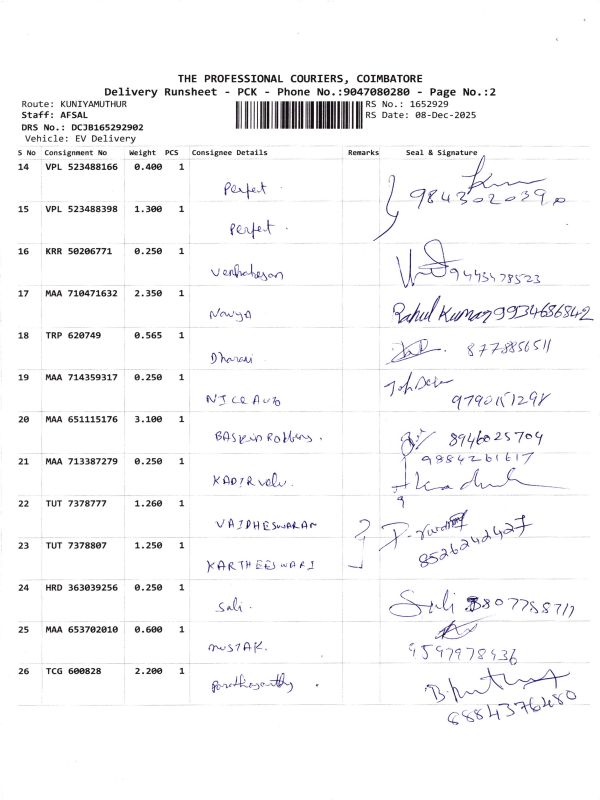 THE PROFESSIONAL COURIERS, COIMBATORE
Delivery Runsheet - PCK - Phone No.:9047080280 - Page No.:2
Route: KUNIYAMUTHUR RS No.: 1652929
Staff: AFSAL RS Date: 08-Dec-2025
DRS No.: DCJB165292902
Vehicle: EV Delivery
S No Consignment No Weight PCS Consignee Details Remarks Seal & Signature
14 VPL 523488166 0.400 1
Perfect. 9843020390
15 VPL 523488398 1.300 1
Perfect.
16 KRR 50206771 0.250 1
Venkatesan 9443478523
17 MAA 710471632 2.350 1
Navya Rahul Kumar 9934686842
18 TRP 620749 0.565 1
Dharani 8778856511
19 MAA 714359317 0.250 1
NICE AUTO 9790151298
20 MAA 651115176 3.100 1
BASKIN Robbins. 8946025704
21 MAA 713387279 0.250 1 9884261617
KADIRvelu.
22 TUT 7378777 1.260 1
VAIDHESWARAN
23 TUT 7378807 1.250 1 8526242427
KARTHEESWARI
24 HRD 363039256 0.250 1
Sali. Sali 8807788711
25 MAA 653702010 0.600 1
MUSTAK. 9597978936
26 TCG 600828 2.200 1
8884376480